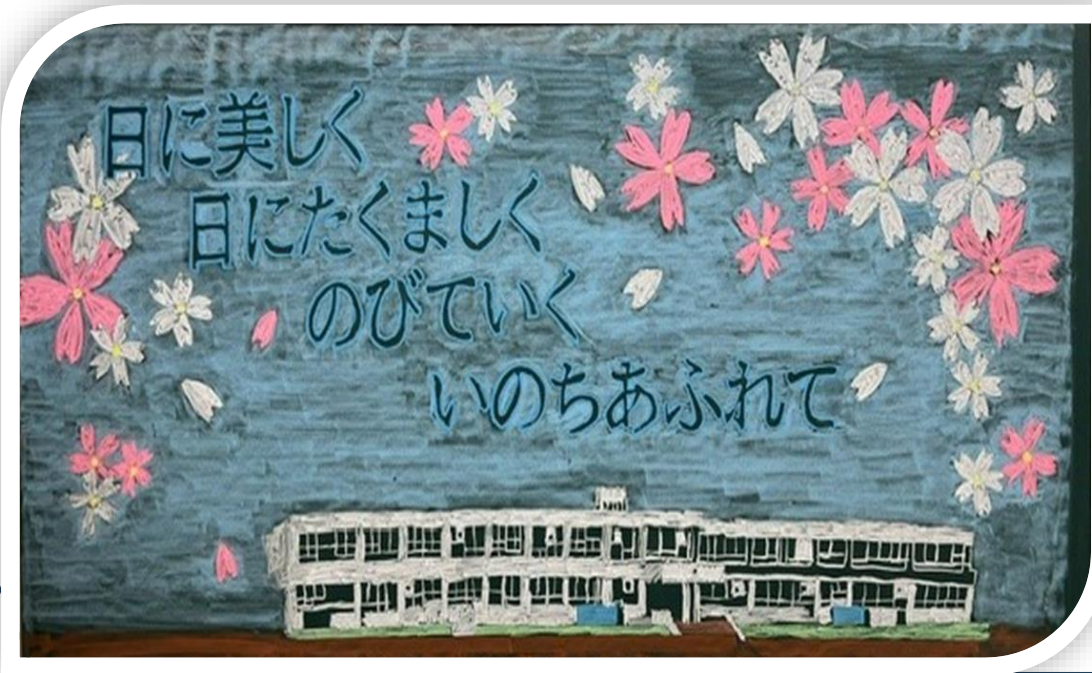 日に美しく
日にたくましく
のびていく
いのちあふれて